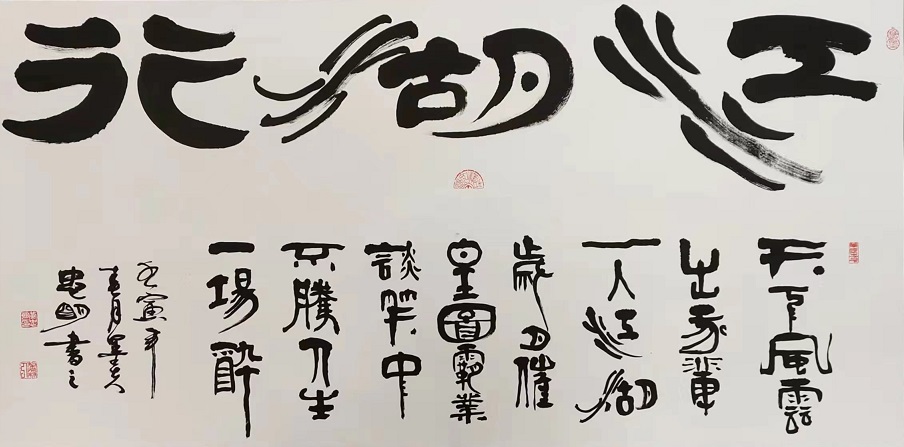 江湖行
天下風雲
出我輩
一入江湖
歲月催
皇圖霸業
談笑中
不勝人生
一場醉
壬寅年
忠明書之